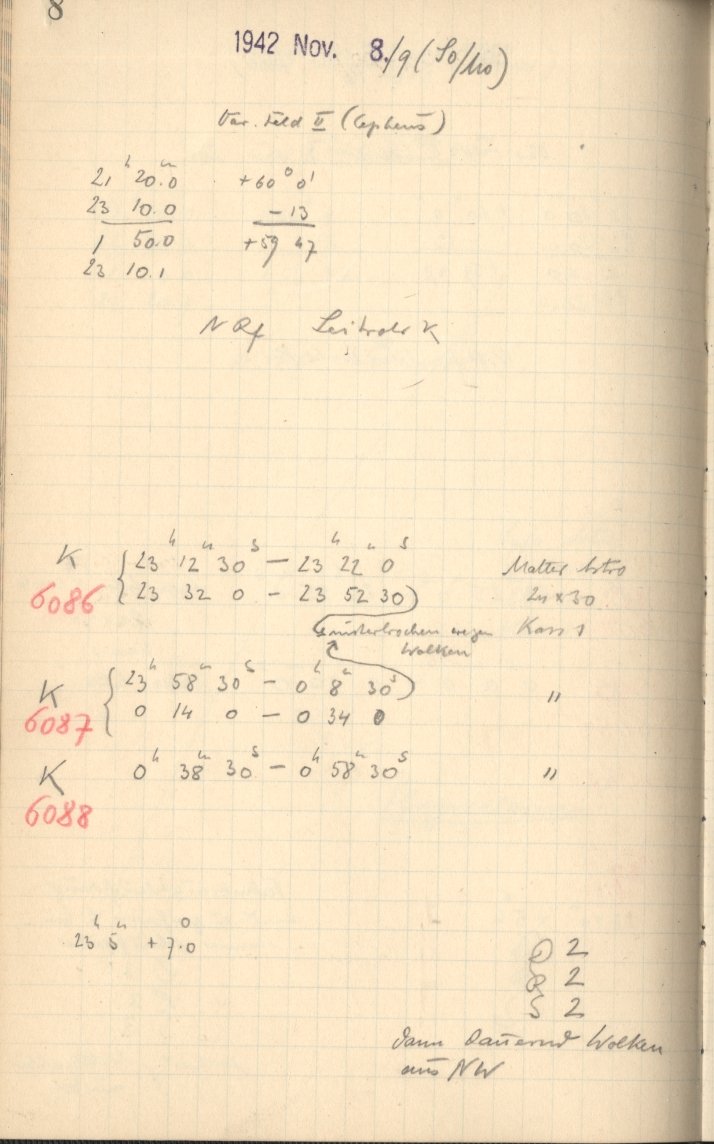 8
1942 Nov. 8./9 (So/Mo)
Var. Feld II (Cepheus)
21 h 20.0 m +60° 0'
23 10.0 - 13
1 50.0 +59 47
23 10.1
K { 23 h 12 m 30 s - 23 h 22 m 0 s
6086 23 32 0 - 23 52 30 ) 24 x 30
unterbrochen wegen Kass 1
Wolken
K { 23 h 58 m 30 s - 0 h 8 m 30 s ) "
6087 0 14 0 - 0 34 0
K 0 h 38 m 30 s - 0 h 58 m 30 s "
6088
23 h 5 m +7.0°
D 2
R 2
S 2
dann dauernd Wolken
aus NW